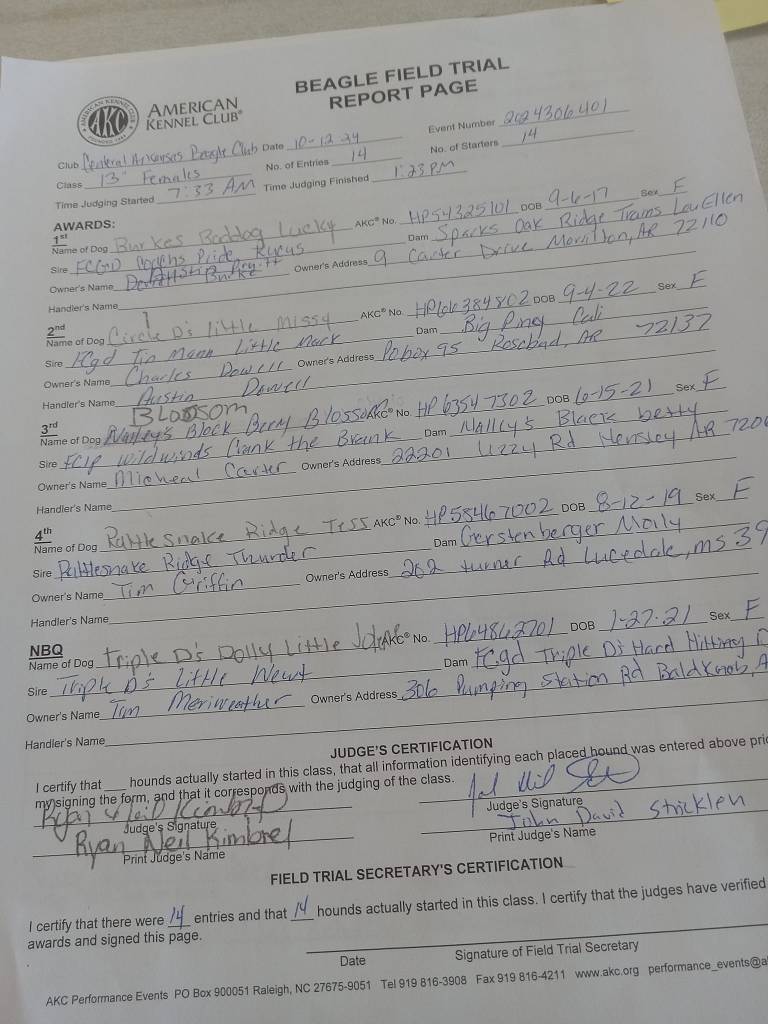 BEAGLE FIELD TRIAL
REPORT PAGE
AMERICAN KENNEL CLUB
FOUNDED 1884
AKC
AMERICAN
KENNEL CLUB®
Club Central Arkansas Beagle Club Date 10-12-24 Event Number 2024306401
Class 13" Females No. of Entries 14 No. of Starters 14
Time Judging Started 7:33 AM Time Judging Finished 1:23 PM
AWARDS:
1st
Name of Dog Burkes Baddog Lucky AKC® No. HP54325101 DOB 9-6-17 Sex F
Sire FCGD Pride Rukus Dam Sparks Oak Ridge Trains LouEllen
Owner's Name Burke Owner's Address 9 Carter Drive Morrilton, AR 72110
Handler's Name
2nd
Name of Dog Circle D's little Missy AKC® No. HP66384802 DOB 9-4-22 Sex F
Sire FCgd Tin Mann Little Mack Dam Big Piney Cali
Owner's Name Charles Dowell Owner's Address PO box 95 Rosebud, AR 72137
Handler's Name Austin Dowell
BLOSSOM
3rd
Name of Dog Nalley's Block Berry Blossom AKC® No. HP63547302 DOB 6-15-21 Sex F
Sire FCIP wildwinds Crank the Brank Dam Nalley's Black betty
Owner's Name Micheal Carter Owner's Address 22201 Lizzy Rd Hensley AR 720
Handler's Name
4th
Name of Dog Rattlesnake Ridge Tess AKC® No. HP58467002 DOB 8-12-19 Sex F
Sire Rattlesnake Ridge Thunder Dam Gerstenberger Molly
Owner's Name Tim Griffin Owner's Address 262 turner Rd Lucedale, MS 39
Handler's Name
NBQ
Name of Dog Triple D's Dolly Little AKC® No. HP64862701 DOB 1-27-21 Sex F
Sire Triple D's Little Newt Dam FCgd Triple D's Hard Hitting
Owner's Name Tim Meriweather Owner's Address 306 Pumping Station Rd Bald Knob, A
Handler's Name
JUDGE'S CERTIFICATION
I certify that ___ hounds actually started in this class, that all information identifying each placed hound was entered above prio
my signing the form, and that it corresponds with the judging of the class.
Ryan Neil Kimbrel
Judge's Signature Judge's Signature
Ryan Neil Kimbrel John David Stricklen
Print Judge's Name Print Judge's Name
FIELD TRIAL SECRETARY'S CERTIFICATION
I certify that there were 14 entries and that 14 hounds actually started in this class. I certify that the judges have verified
awards and signed this page.
Date Signature of Field Trial Secretary
AKC Performance Events PO Box 900051 Raleigh, NC 27675-9051 Tel 919 816-3908 Fax 919 816-4211 www.akc.org performance_events@a